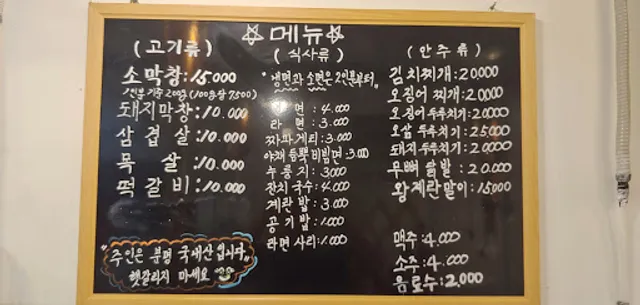 ☆메뉴☆
(고기류)
소막창:15000
1인분 기준 200g (100g당 7,500)
돼지막창:10.000
삼겹살:10.000
목살:10.000
떡갈비:10.000
"주인은 분명 국내산입니다"
햇갈리지 마세요
(식사류)
"냉면과 소면은 2인분부터"
면:4.000
라면:3.000
짜파게티:3.000
야채 듬뿍 비빔면:3.000
누룽지:3000
잔치국수:4.000
계란밥:3.000
공기밥:1.000
라면사리:1.000
(안주류)
김치찌개:20000
오징어 찌개:20000
오징어 두루치기:20000
오삼 두루치기:25000
돼지 두루치기:20000
무뼈 닭발:20.000
왕계란말이:15000
맥주:4.000
소주:4.000
음료수:2.000